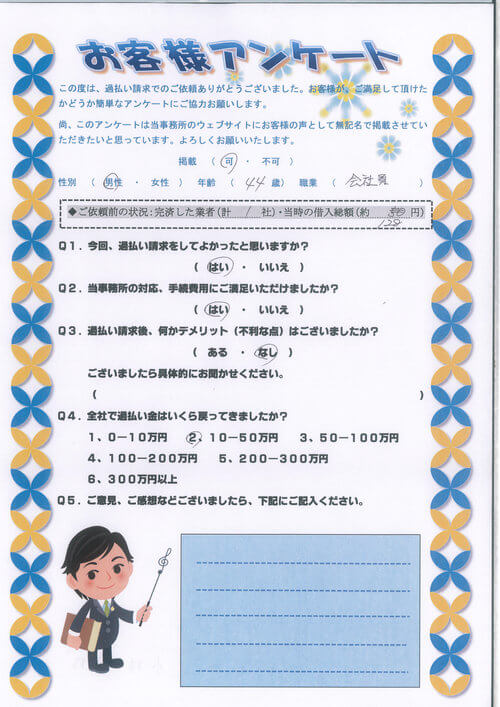 お客様アンケート
この度は、過払い請求でのご依頼ありがとうございました。お客様が、ご満足して頂けた
かどうか簡単なアンケートにご協力お願いします。
尚、このアンケートは当事務所のウェブサイトにお客様の声として無記名で掲載させてい
ただきたいと思っています。よろしくお願いいたします。
掲載 ( 可 ・ 不可 )
性別 ( 男性 ・ 女性 ) 年齢 ( 44 歳) 職業 ( 会社員 )
◆ご依頼前の状況:完済した業者(計 1 社)・当時の借入総額(約 円)
Q1.今回、過払い請求をしてよかったと思いますか?
( はい ・ いいえ )
Q2.当事務所の対応、手続費用にご満足いただけましたか?
( はい ・ いいえ )
Q3.過払い請求後、何かデメリット(不利な点)はございましたか?
( ある ・ なし )
ございましたら具体的にお聞かせください。
( )
Q4.全社で過払い金はいくら戻ってきましたか?
1、0-10万円 2、10-50万円 3、50-100万円
4、100-200万円 5、200-300万円
6、300万円以上
Q5.ご意見、ご感想などございましたら、下記にご記入ください。